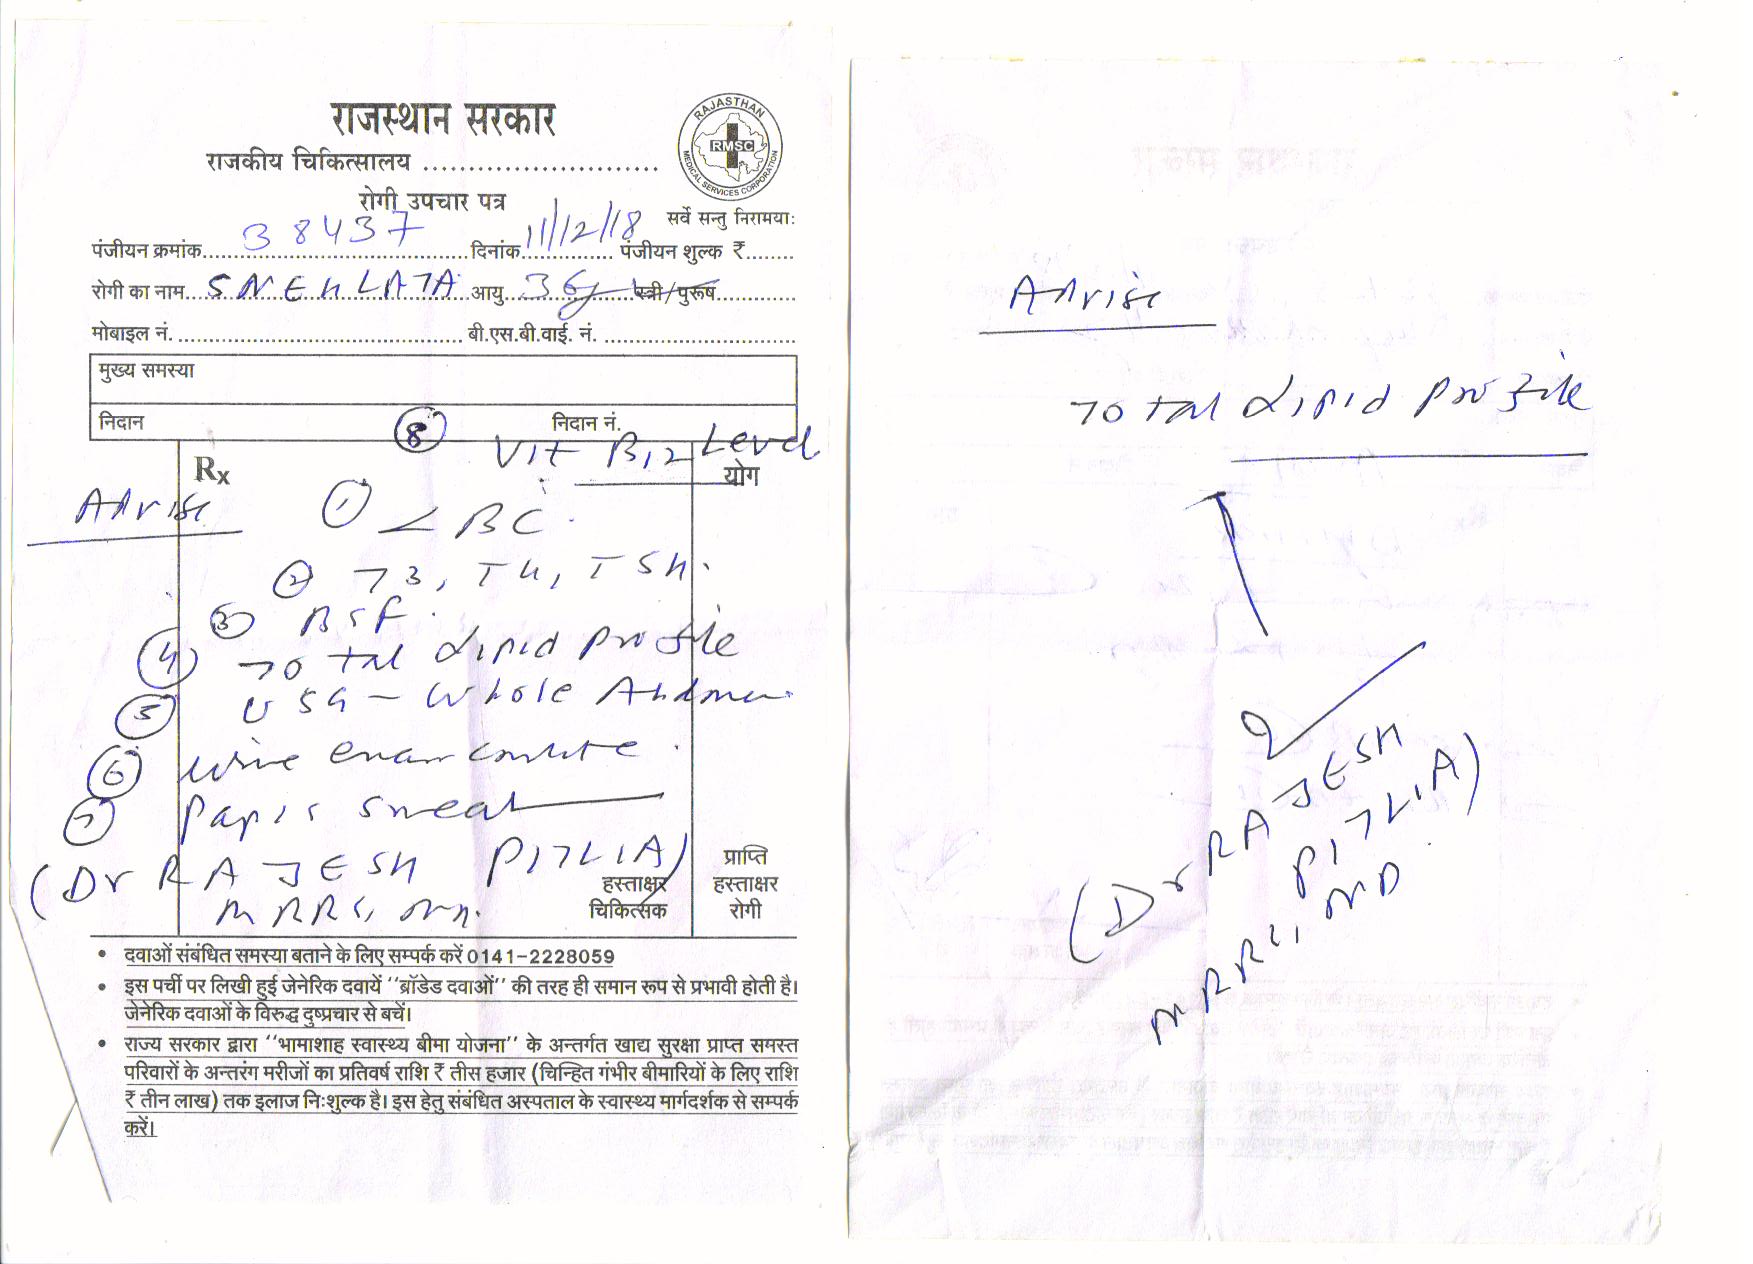 राजस्थान सरकार
राजकीय चिकित्सालय ..........................
RAJASTHAN
RMSC
MEDICAL SERVICES CORPORATION
रोगी उपचार पत्र
सर्वे सन्तु निरामयाः
पंजीयन क्रमांक 38437 दिनांक 11/12/18 पंजीयन शुल्क ₹ ........
रोगी का नाम SNEHLATA आयु 36y स्त्री/पुरूष
मोबाइल नं. .......... बी.एस.बी.वाई. नं. ..........
मुख्य समस्या
निदान निदान नं.
⑧ Vit B12 Level
Rx योग
Advise ① CBC
② T3, T4, TSH.
③ BSF.
④ Total Lipid profile
⑤ USG - Whole Abdomen
⑥ Urine exam complete
⑦ Pap's smear
(Dr RAJESH PITLIA)
MBBS, MD.
हस्ताक्षर चिकित्सक
प्राप्ति हस्ताक्षर रोगी
• दवाओं संबंधित समस्या बताने के लिए सम्पर्क करें 0141-2228059
• इस पर्ची पर लिखी हुई जेनेरिक दवायें ''ब्रॉडेड दवाओं'' की तरह ही समान रूप से प्रभावी होती है।
जेनेरिक दवाओं के विरुद्ध दुष्प्रचार से बचें।
• राज्य सरकार द्वारा ''भामाशाह स्वास्थ्य बीमा योजना'' के अन्तर्गत खाद्य सुरक्षा प्राप्त समस्त
परिवारों के अन्तरंग मरीजों का प्रतिवर्ष राशि ₹ तीस हजार (चिन्हित गंभीर बीमारियों के लिए राशि
₹ तीन लाख) तक इलाज निःशुल्क है। इस हेतु संबंधित अस्पताल के स्वास्थ्य मार्गदर्शक से सम्पर्क
करें।
Advise
Total Lipid profile
(Dr RAJESH
PITLIA)
MBBS, MD